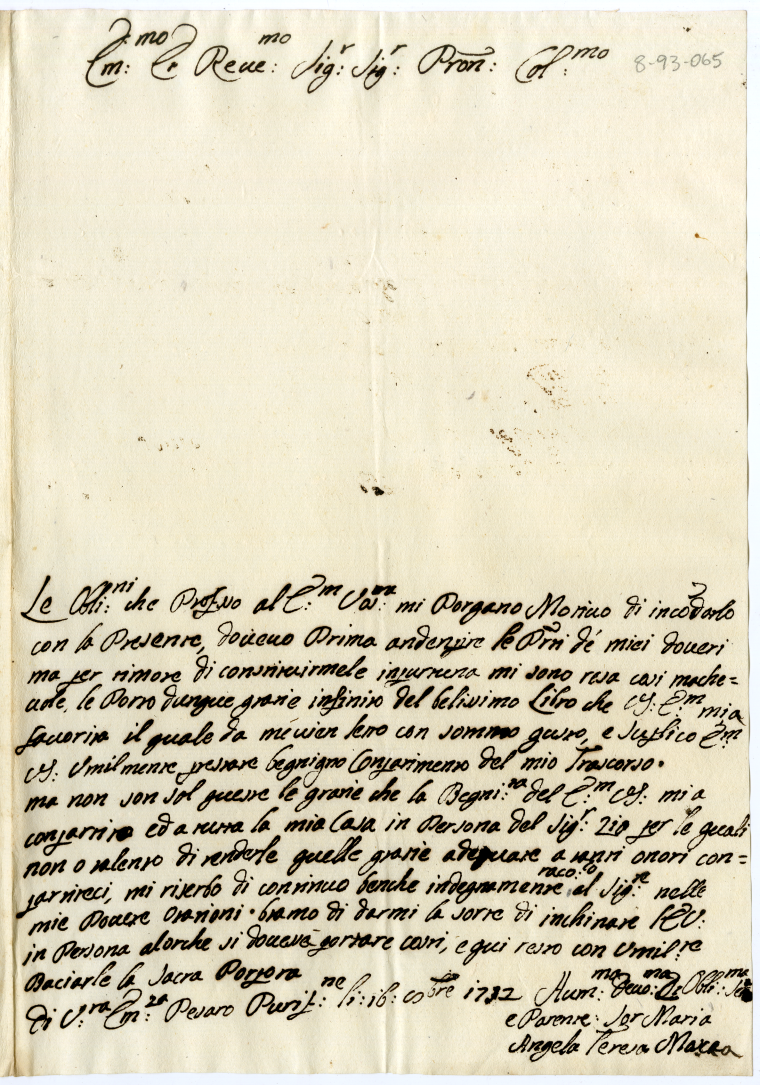 Em:mo e Reue:mo Sig:r Sig:r Pron: Col:mo 8-93-065
Le Obli:ni che Professo al E:m Vos:ra mi Porgano Motiuo di incõdarlo
con la Presente, doueuo Prima andenpire le Prti dé miei doueri
ma per timore di constituirmele inportuna mi sono resa cosi mache=
uole, le Porto dunque gratie infinite del belissimo Libro che VS: E:m mia
fauorita il quale da mé uien leto con sommo gusto, e suplico E:m
VS: Vmilmente prestare begnigno Conpatimento del mio Trascorso.
ma non son sol queste le gratie che la Begni:tà del E:m VS: mi a
conpartito ed a tutta la mia Casa in Persona del Sig:r Zio per le quali
non o talento di renderle quelle gratie adequate a tanti onori con=
partiteci, mi riserbo di continuo benche indegnamente raco:lo al Sig:re nelle
mie Pouere Orationi. bramo di darmi la sorte di inchinare l'EV:
in Persona alorche si douerà portare costi, e qui resto con Vmil:te
Baciarle la Sacra Porpora
di V:ra Em:za Pesaro Purif:ne li: 16: obre 1732 Hum:ma Deuo:ma e Obli:ma
e Parente: Sor Maria
Angela Teresa